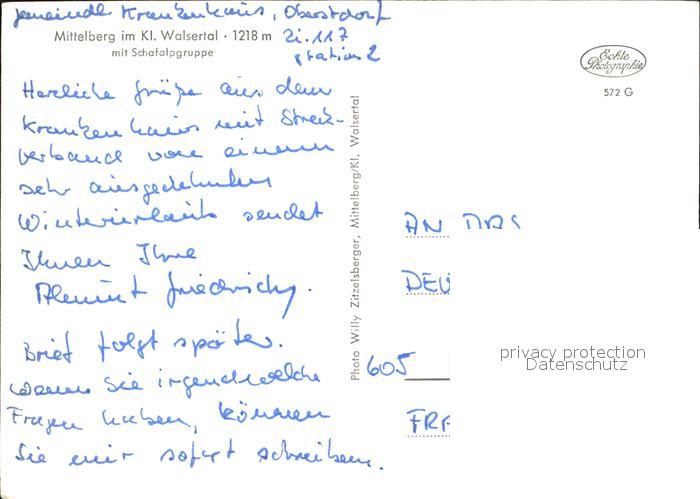 gemeindl. Krankenhaus, Oberstdorf
Zi. 117
Station 2
Mittelberg im Kl. Walsertal · 1218 m
mit Schafalpgruppe
Echte Photographie
572 G
Herzliche Grüße aus dem
Krankenhaus mit Streck-
verband von einem
sehr ausgedehnten
Winterurlaub sendet
Ihnen Ihre
Almut Friedrich.
Brief folgt später.
Wenn Sie irgendwelche
Fragen haben, können
Sie mir sofort schreiben.
Photo Willy Zitzelsberger, Mittelberg/Kl. Walsertal
AN DAS
DEU
605
FRA
privacy protection
Datenschutz